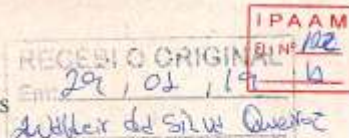 IPAAM
Fl. Nº 122
RECEBI O ORIGINAL
Em: 29, 01, 19
da Silva Queiroz
s